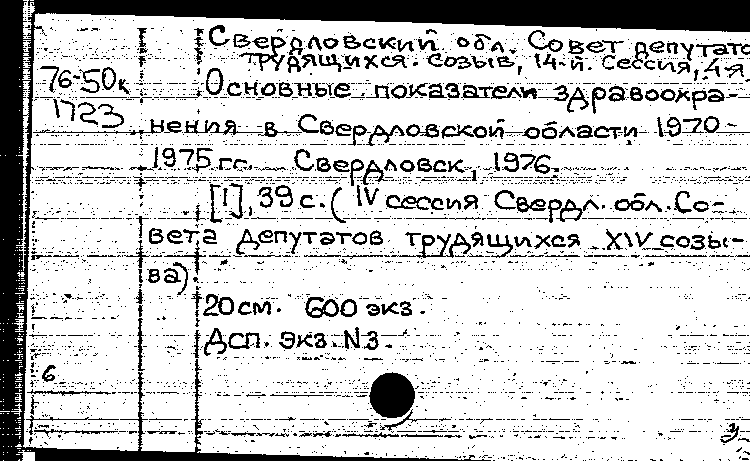 Свердловский обл. Совет депутато
трудящихся. Созыв, 14-й. Сессия, 4-я
76-50к Основные показатели здравоохра-
1723 нения в Свердловской области 1970-
1975 гг. Свердловск, 1976.
[1], 39 с. (IV сессия Свердл. обл. Со-
вета депутатов трудящихся XIV созы-
ва).
20 см. 600 экз.
Дсп. Экз. N 3.
6
3